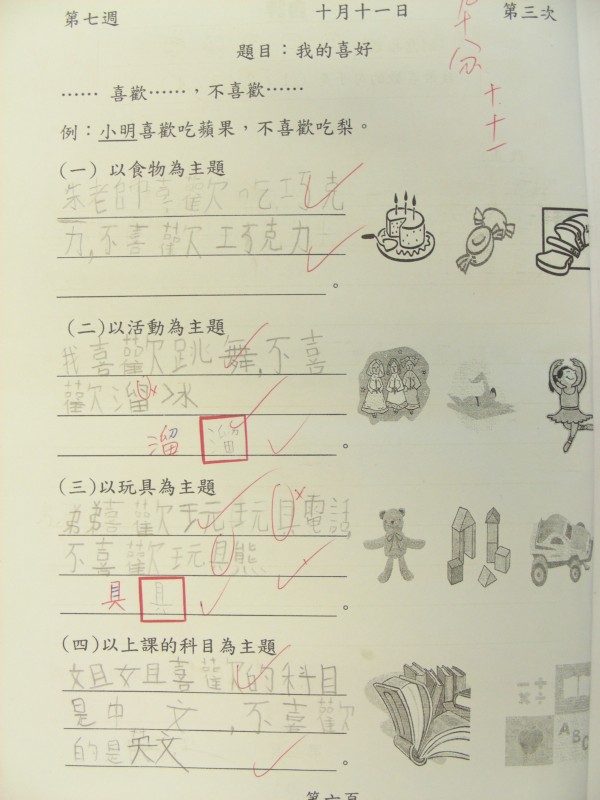 第七週 十月十一日 第三次
題目：我的喜好
…… 喜歡……，不喜歡……
例：小明喜歡吃蘋果，不喜歡吃梨。
(一) 以食物為主題
朱老師喜歡吃巧克
力,不喜歡巧克力
。
(二)以活動為主題
我喜歡跳舞,不喜
歡溜冰
溜 溜 。
(三)以玩具為主題
弟弟喜歡玩玩具電話,
不喜歡玩具熊
具 具 。
(四)以上課的科目為主題
姐姐喜歡的科目
是中文,不喜歡
的是英文
。
ABC
第六頁